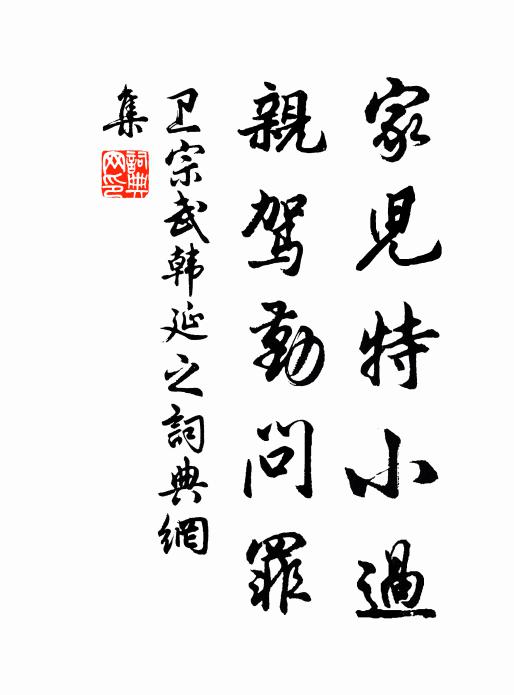 家児特小過
親駕勤問罪
卫宗武韩延之詞典網
集
詞典网印